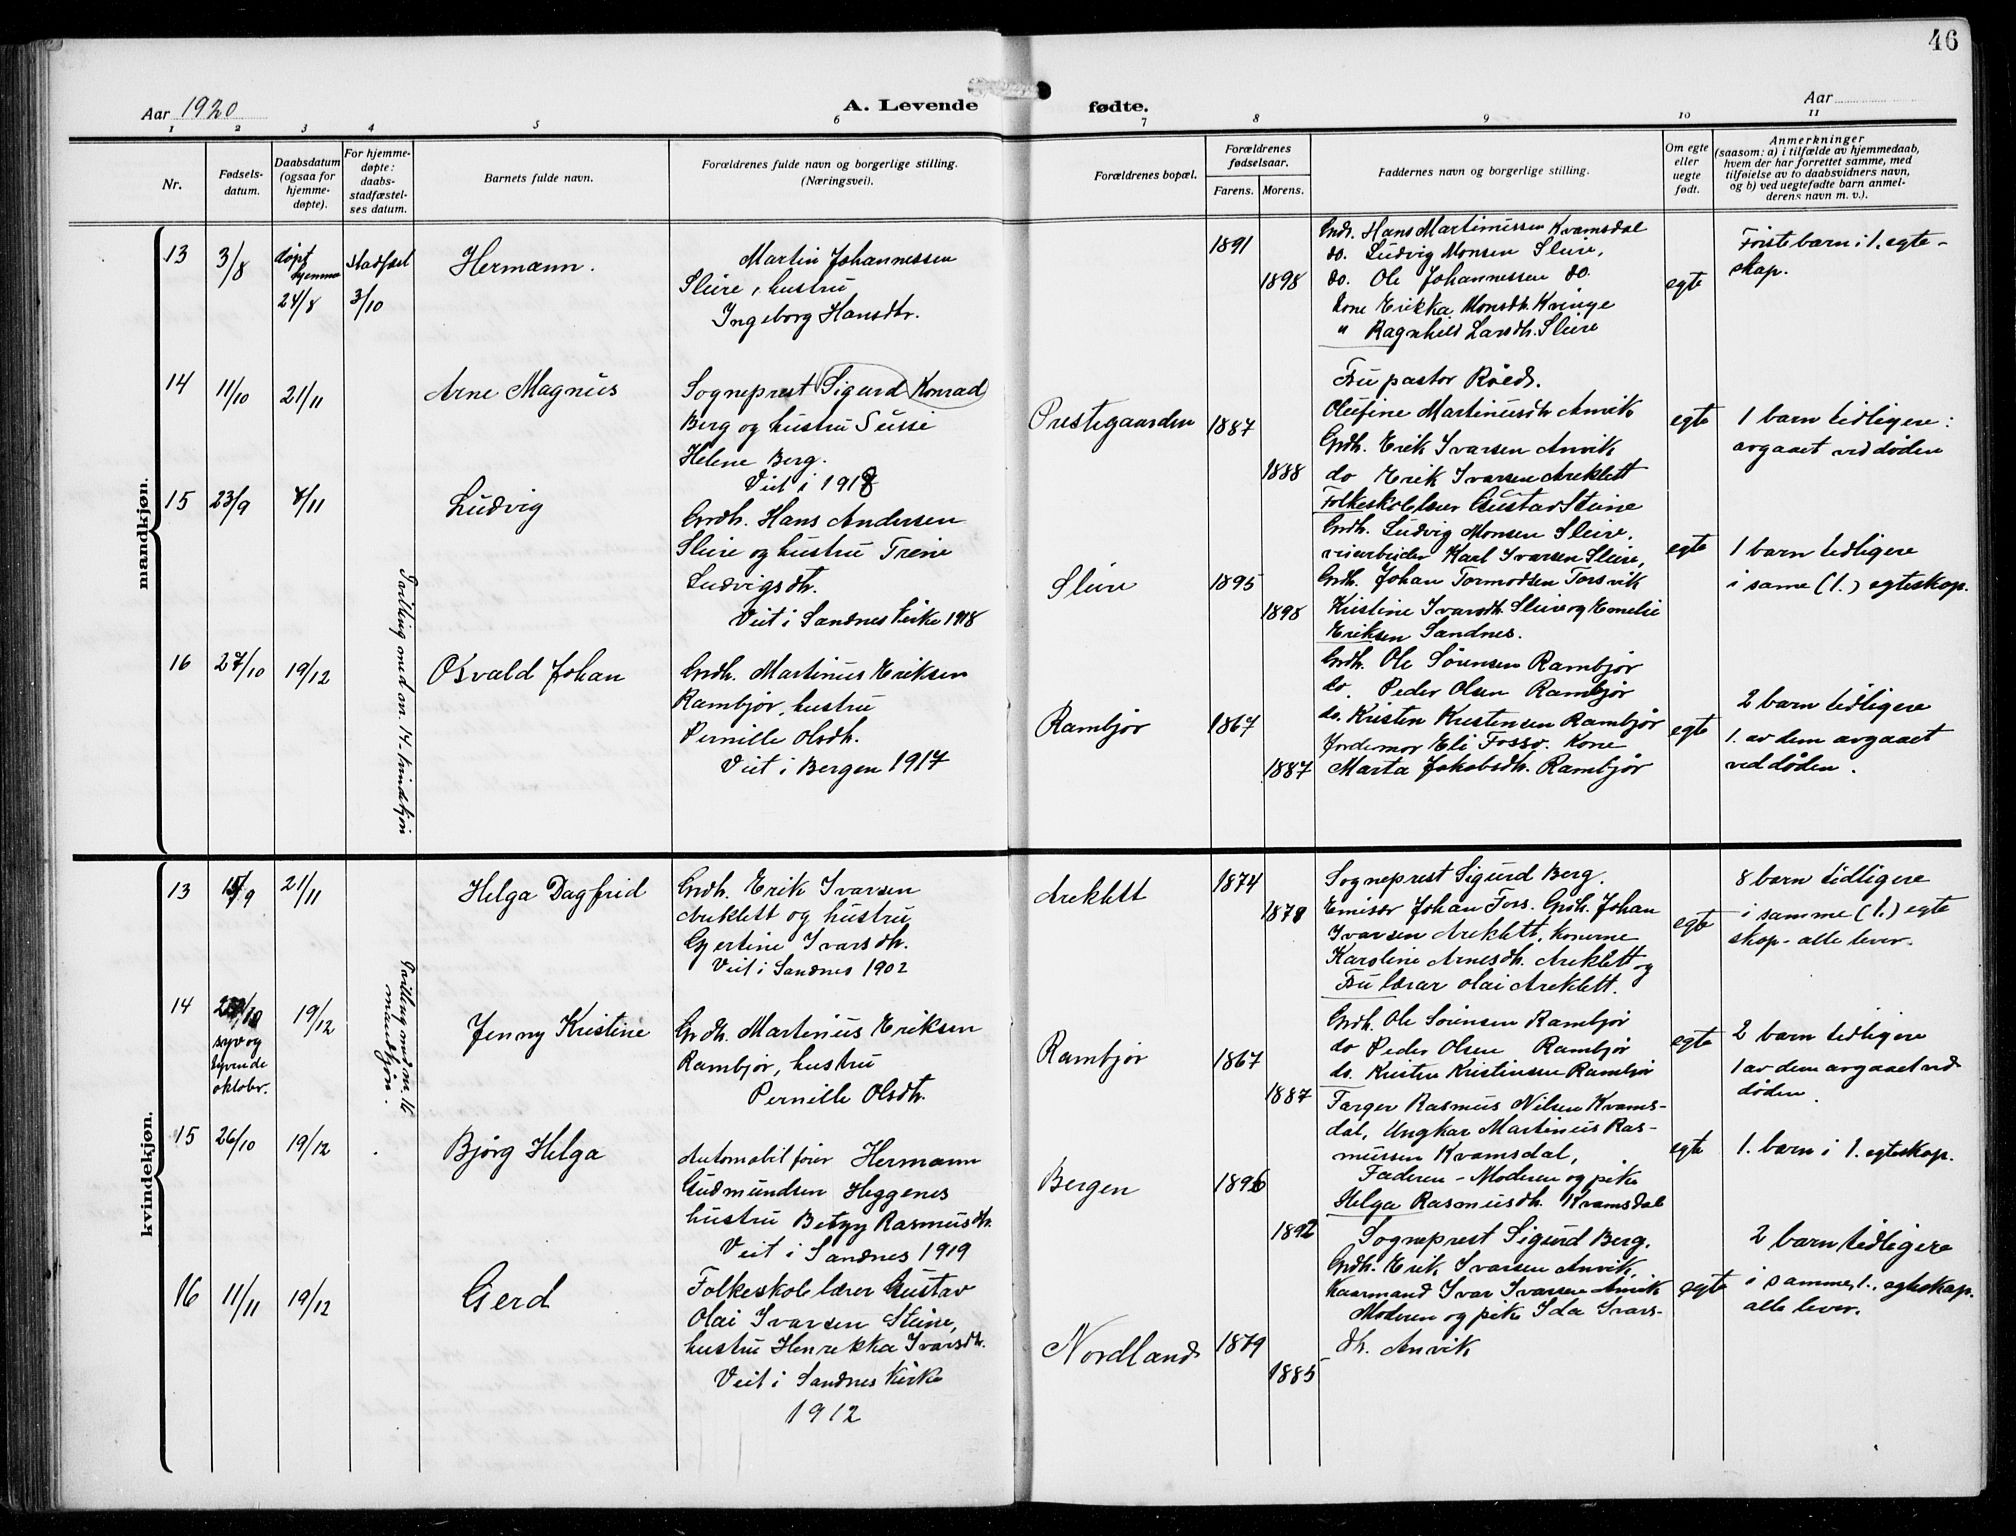 46
Aar 1920
A. Levende fødte.
Aar
1 2 3 4 5 6 7 8 9 10 11
Nr.
Fødsels-
datum.
Daabsdatum
(ogsaa for
hjemme-
døpte).
For hjemme-
døpte:
daabs-
stadfæstel-
ses datum.
Barnets fulde navn.
Forældrenes fulde navn og borgerlige stilling.
(Næringsvei).
Forældrenes bopæl.
Forældrenes
fødselsaar.
Farens. Morens.
Faddernes navn og borgerlige stilling.
Om egte
eller
uegte
født.
Anmerkninger
(saasom: a) i tilfælde av hjemmedaab,
hvem der har forrettet samme, med
tilføielse av to daabsvidners navn,
og b) ved uegtefødte barn anmel-
derens navn m. v.).
mandkjøn.
13 3/8 døpt
hjemme
24/8
stadfæst
3/10
Hermann.
Martin Johannessen
Sleire, hustru
Ingeborg Hansdtr.
1891
1898
Grdr. Hans Martinussen Kvamsdal
do. Ludvig Monsen Sleire,
do. Ole Johannessen do
Kone Erikka Monsdtr. Kvinge
" Ragnhild Larsdtr. Sleire
egte
Første barn i 1. egte-
skap.
14 11/10 21/11
Arne Magnus
Sogneprest Sigurd Konrad
Berg og hustru Sussi
Helene Berg.
Viet i 1918
Prestegaarden
1887
1888
Fru pastor Röed.
Olufine Martinusdtr Anvik
Grdbr. Erik Ivarsen Anvik
do Erik Ivarsen Areklett
Folkeskolelærer Gustav Steine
egte
1 barn tidligere:
avgaaet ved døden
15 23/9 7/11
Ludvig
Grdbr. Hans Andersen
Sleire og hustru Trine
Ludvigsdtr.
Viet i Sandnes kirke 1918
Sleire
1895
1898
Grdbr. Ludvig Monsen Sleire,
veiarbeider Karl Ivarsen Sleire,
Grdbr. Johan Tormodsen Torsvik
Kristine Ivarsdtr. Sleire og Emelie
Eriksen Sandnes.
egte
1 barn tidligere
i same (1.) egteskap.
16 27/10 19/12
Tvilling med nr. 14 - kvindekjøn
Osvald Johan
Grdbr. Martinus Eriksen
Rambjør, hustru
Pernille Olsdtr.
Viet i Bergen 1917
Rambjør
1867
1887
Grdbr. Ole Sørensen Rambjør
do. Peder Olsen Rambjør
do. Kristen Kristensen Rambjør
Jordemor Eli Fosse. Kone
Marta Jakobsdtr. Rambjør
egte
2 barn tidligere
1. av dem avgaaet
ved døden.
kvindekjøn.
13 15/9 21/11
Helga Dagfrid
Grdbr. Erik Ivarsen
Areklett og hustru
Gjertine Ivarsdtr.
Viet i Sandnes 1902
Areklett
1874
1878
Sogneprest Sigurd Berg.
Emisær Johan Fors. Grdbr. Johan
Ivarsen Areklett, konerne
Karoline Arnesdtr. Areklett og
Fru lærar Olai Areklett.
egte
8 barn tidligere
i samme (1.) egte
skap - alle lever.
14 27/10
syv og
tyvende
oktobr.
19/12
Tvilling med nr. 16
mandkjøn.
Jenny Kristine
Grdbr. Martinus Eriksen
Rambjør, hustru
Pernille Olsdtr.
Rambjør
1867
1887
Grdbr. Ole Sørensen Rambjør
do Peder Olsen Rambjør
do. Kristen Kristensen Rambjør
egte
2 barn tidligere
1 av dem avgaaet ved
døden.
15 26/10 19/12
Bjørg Helga
Automobilfører Hermann
Gudmundsen Heggenes
hustru Betzy Rasmusdtr.
Viet i Sandnes 1919
Bergen
1896
1892
Farger Rasmus Nilsen Kvams-
dal, Ungkar Martinus Ras-
mussen Kvamsdal,
Faderen - Moderen og pike
Helga Rasmusdtr. Kvamsdal
egte
1. barn i 1. egteskap.
16 11/11 19/12
Gerd
Folkeskolelærer Gustav
Olai Ivarsen Steine,
hustru Henrikka Ivarsdtr.
Viet i Sandnes Kirke
1912
Nordland
1879
1885
Sogneprest Sigurd Berg.
Grdbr. Erik Ivarsen Anvik,
Kaarmand Ivar Ivarsen Anvik
Moderen og pike Ida Ivars-
dtr. Anvik
egte
2 barn tidligere
i samme, 1. egteskap.
alle lever.